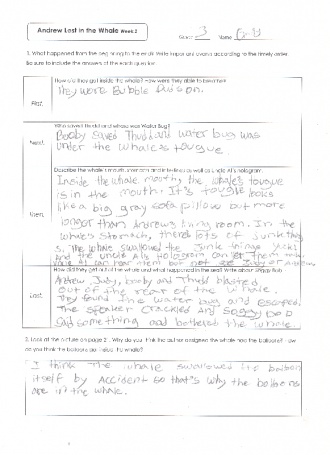 Andrew Lost in the Whale Week 2
Grade 3 Name
1. What happened from the beginning to the end? Write important events according to the timely order.
Be sure to include the answers of the each question.
How did they get inside the whale? How were they able to breathe?
First,
They wore Bubble
Who saved Thudd and where was Water Bug?
Next,
Booby saved Thudd and water bug was
under the whale's tougue.
Describe the whale's mouth, stomach and intestines as well as Uncle Al's hologram.
Then,
Inside the whale mouth, the whale's tougue
is in the mouth. It's tougue looks
like a big gray sofa pillow but more
longer than Andrew's living room. In the
whale's stomach, there lots of junk thing
s. The whale swallowed the junk things yuck!
and the uncle Al's Hologram can
Al can hear them but not see
How did they get out of the whale and what happened in the end? Write about Soggy Bob
Last,
Andrew, Judy, booby and Thudd blasted
out of the rear of the whale.
They found the water bug and escaped.
The speaker crackled and Soggy bob
said something and bothered the whale.
2. Look at the picture on page 2. Why do you think the author designed the whale had the balloons? How
do you think the balloons got inside the whale?
I think the whale swallowed its balloon
itself by accident so that's why the balloons
are in the whale.